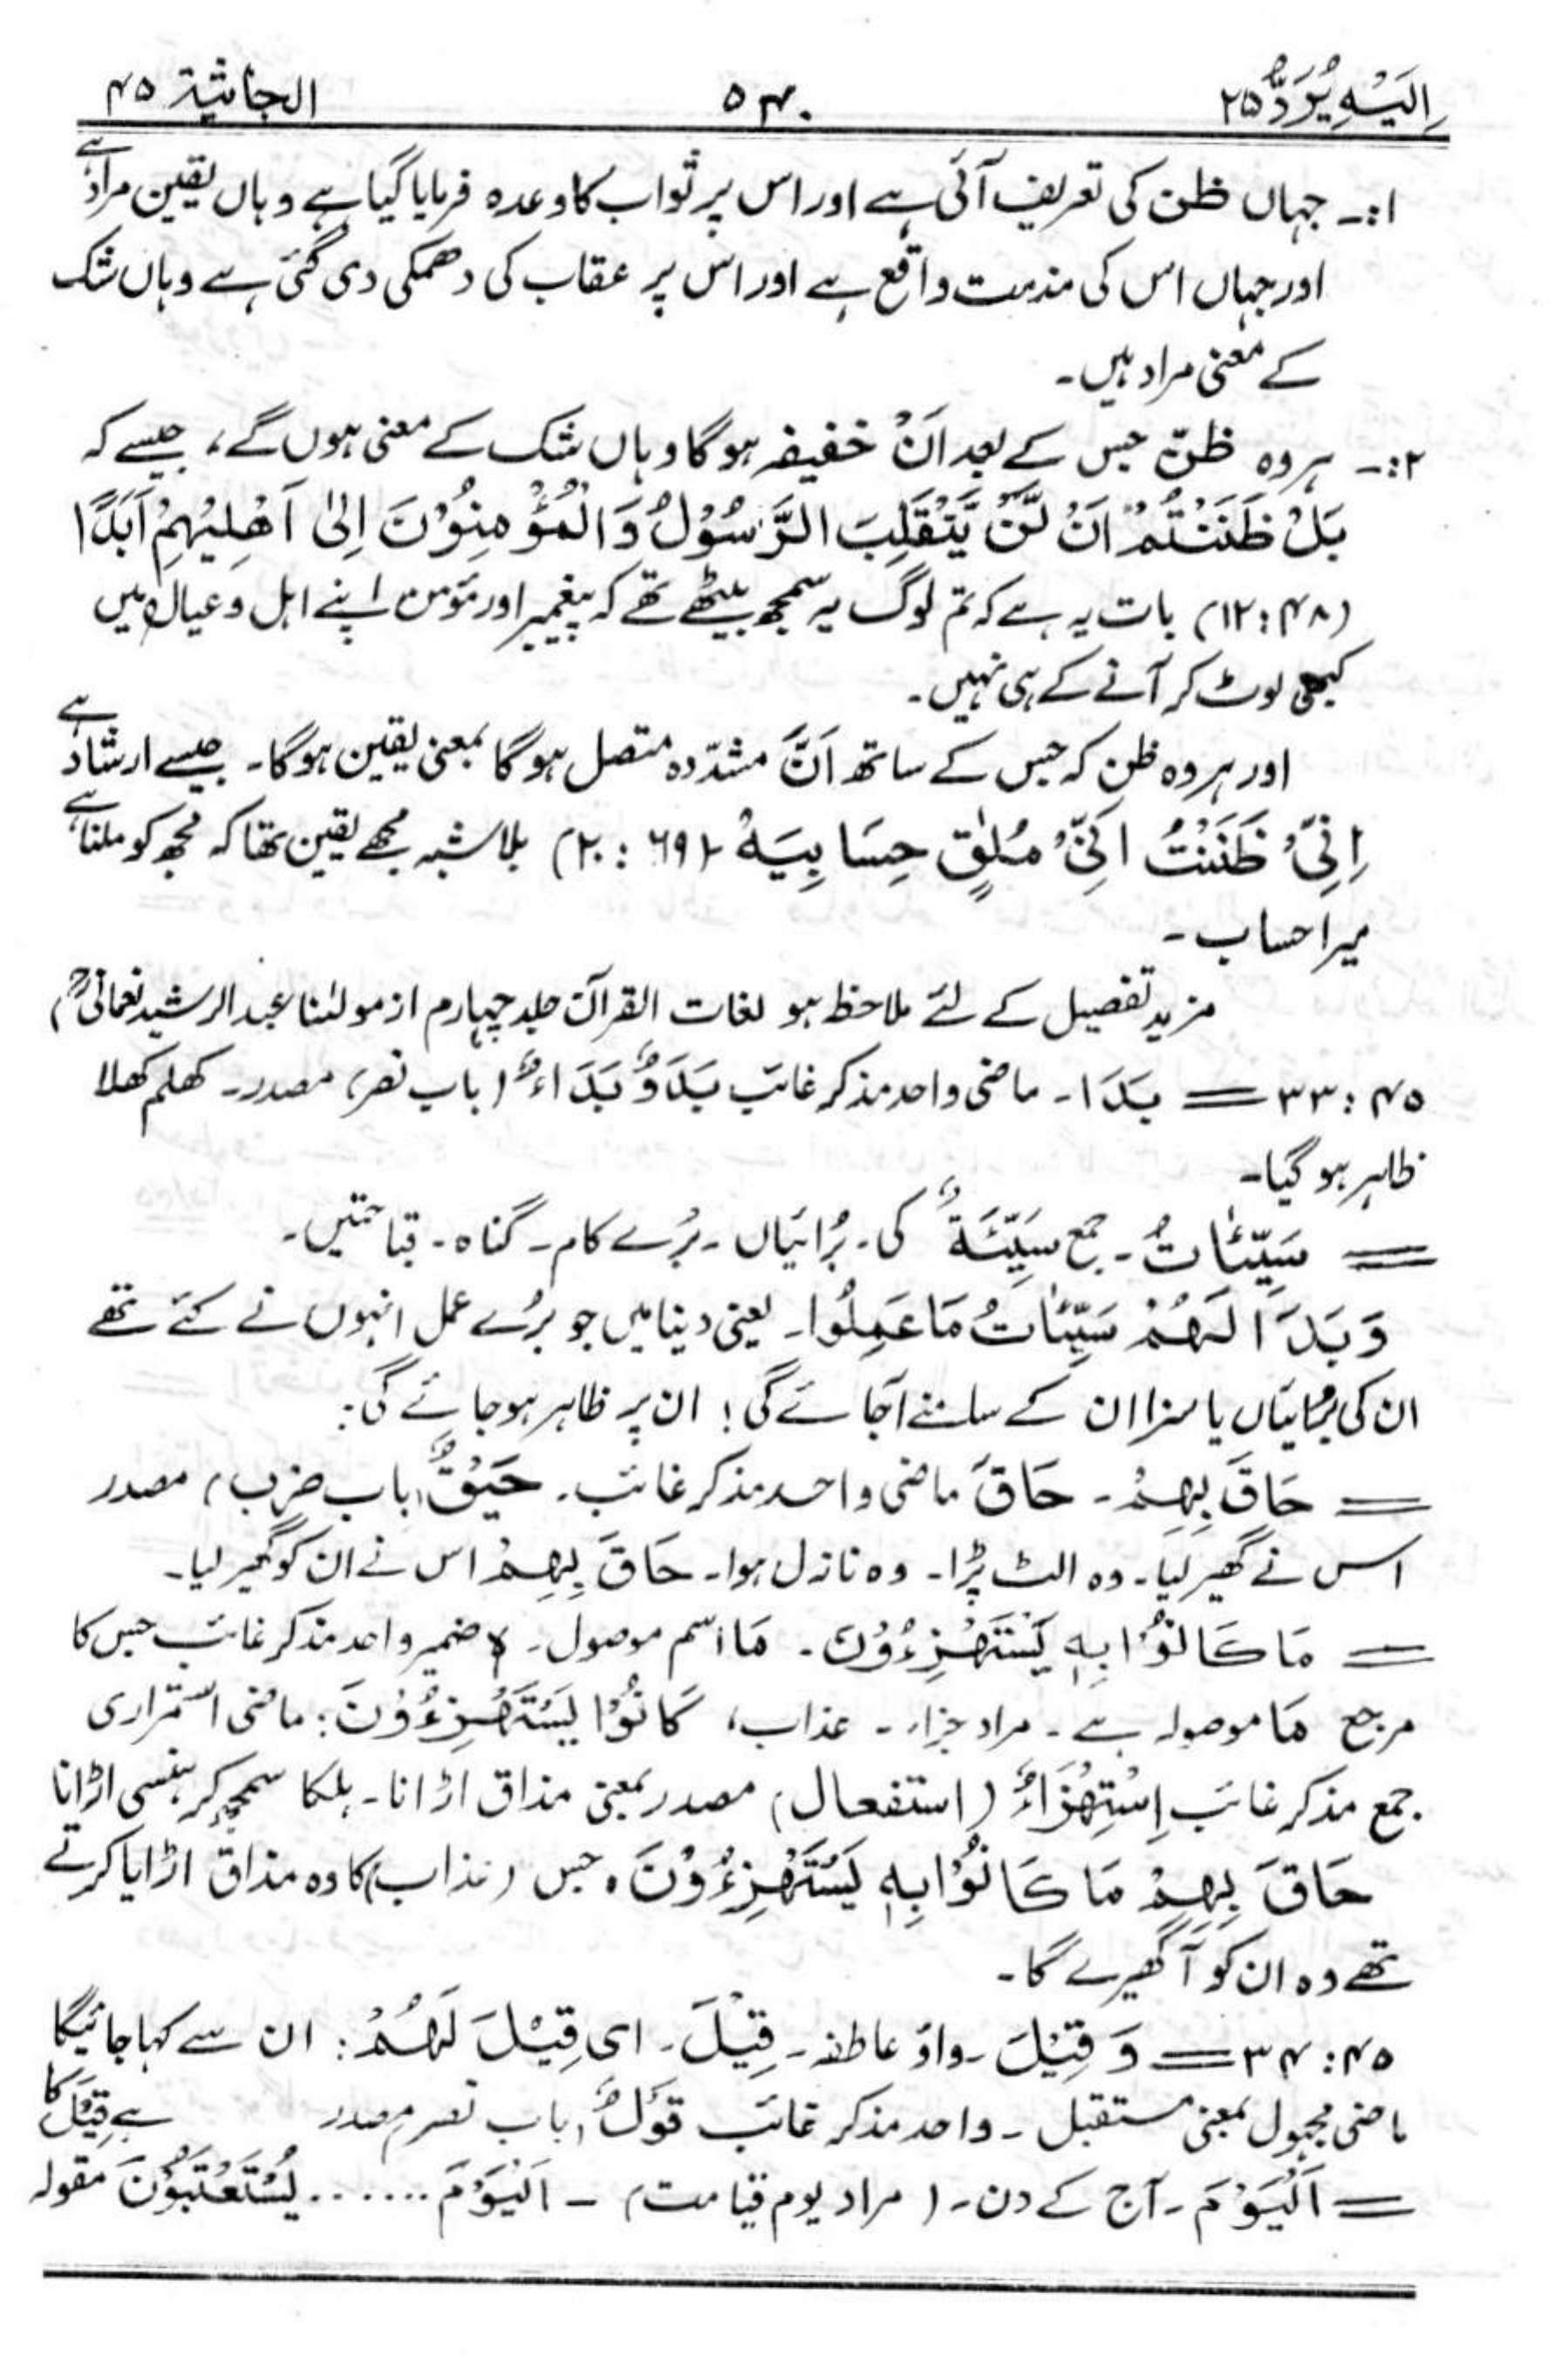 اِلَیْہِ یُرَدُّ ۲۵ ۵۴۰ الجاثیۃ ۴۵
۱:۔ جہاں ظن کی تعریف آئی ہے اور اس پر ثواب کا وعدہ فرمایا گیا ہے وہاں یقین مراد ہے
اور جہاں اس کی مذمت واقع ہے اور اس پر عقاب کی دھمکی دی گئی ہے وہاں شک
کے معنی مراد ہیں۔
۲:۔ ہر وہ ظنّ جس کے بعد اَنْ خفیفہ ہوگا وہاں شک کے معنی ہوں گے، جیسے کہ
بَلْ ظَنَنْتُمْ اَنْ لَّنْ یَّنْقَلِبَ الرَّسُوْلُ وَالْمُؤْمِنُوْنَ اِلیٰ اَھْلِیْہِمْ اَبَدًا
(۱۲:۴۸) بات یہ ہے کہ تم لوگ یہ سمجھ بیٹھے تھے کہ پیغمبر اور مؤمن اپنے اہل و عیال میں
کبھی لوٹ کر آنے کے ہی نہیں۔
اور ہر وہ ظن کہ جس کے ساتھ اَنَّ مشدّدہ متصل ہوگا بمعنی یقین ہوگا۔ جیسے ارشاد ہے
اِنِّیْ ظَنَنْتُ اَنِّیْ مُلٰقٍ حِسَابِیَہْ (۶۹ : ۲۰) بلا شبہ مجھے یقین تھا کہ مجھ کو ملنا ہے
میرا حساب ۔
مزید تفصیل کے لئے ملاحظہ ہو لغات القرآن جلد چہارم از مولٰنا عبد الرشید نعمانیؒ)
۴۵ : ۳۳ = بَدَا۔ ماضی واحد مذکر غائب بَدْوٌ بَدَاءٌ (باب نصر) مصدر۔ کھلم کھلا
ظاہر ہو گیا۔
= سَیِّئَاتُ۔ جمع سَیِّئَۃٌ کی۔ بُرائیاں ۔ بُرے کام۔ گناہ ۔ قباحتیں۔
وَبَدَا لَہُمْ سَیِّئَاتُ مَا عَمِلُوا۔ یعنی دنیا میں جو بُرے عمل انہوں نے کئے تھے
ان کی برائیاں یا سزا ان کے سامنے آجائے گی! ان پر ظاہر ہوجائے گی:
= حَاقَ بِہِمْ ۔ حَاقَ ماضی واحد مذکر غائب۔ حَیْقٌ، باب ضرب) مصدر
اس نے گھیر لیا۔ وہ الٹ پڑا۔ وہ نازل ہوا۔ حَاقَ بِہِمْ اس نے ان کو گھیر لیا۔
= مَا کَانُوْا بِہٖ یَسْتَہْزِءُوْنَ ۔ مَا اسم موصول ۔ ہ ضمیر واحد مذکر غائب جس کا
مرجع مَا موصولہ ہے ۔ مراد جزاء ۔ عذاب، کَانُوْا یَسْتَہْزِءُوْنَ: ماضی استمراری
جمع مذکر غائب اِسْتِہْزَاءٌ (استفعال) مصدر بمعنی مذاق اڑانا۔ ہلکا سمجھ کر ہنسی اڑانا
حَاقَ بِہِمْ مَا کَانُوْا بِہٖ یَسْتَہْزِءُوْنَ۔ جس (عذاب) کا وہ مذاق اڑایا کرتے
تھے وہ ان کو آ گھیرے گا۔
۴۵ : ۳۴ = وَ قِیْلَ ۔ واؤ عاطفہ ۔ قِیْلَ۔ ای قِیْلَ لَہُمْ : ان سے کہا جائیگا
ماضی مجہول بمعنی مستقبل ۔ واحد مذکر غائب قَوْلٌ، باب نصر مصدر
= اَلْیَوْمَ ۔ آج کے دن ۔ ( مراد یوم قیامت) ۔ اَلْیَوْمَ ...... یُسْتَعْتَبُوْنَ مقولہ ہے قِیْلَ کا